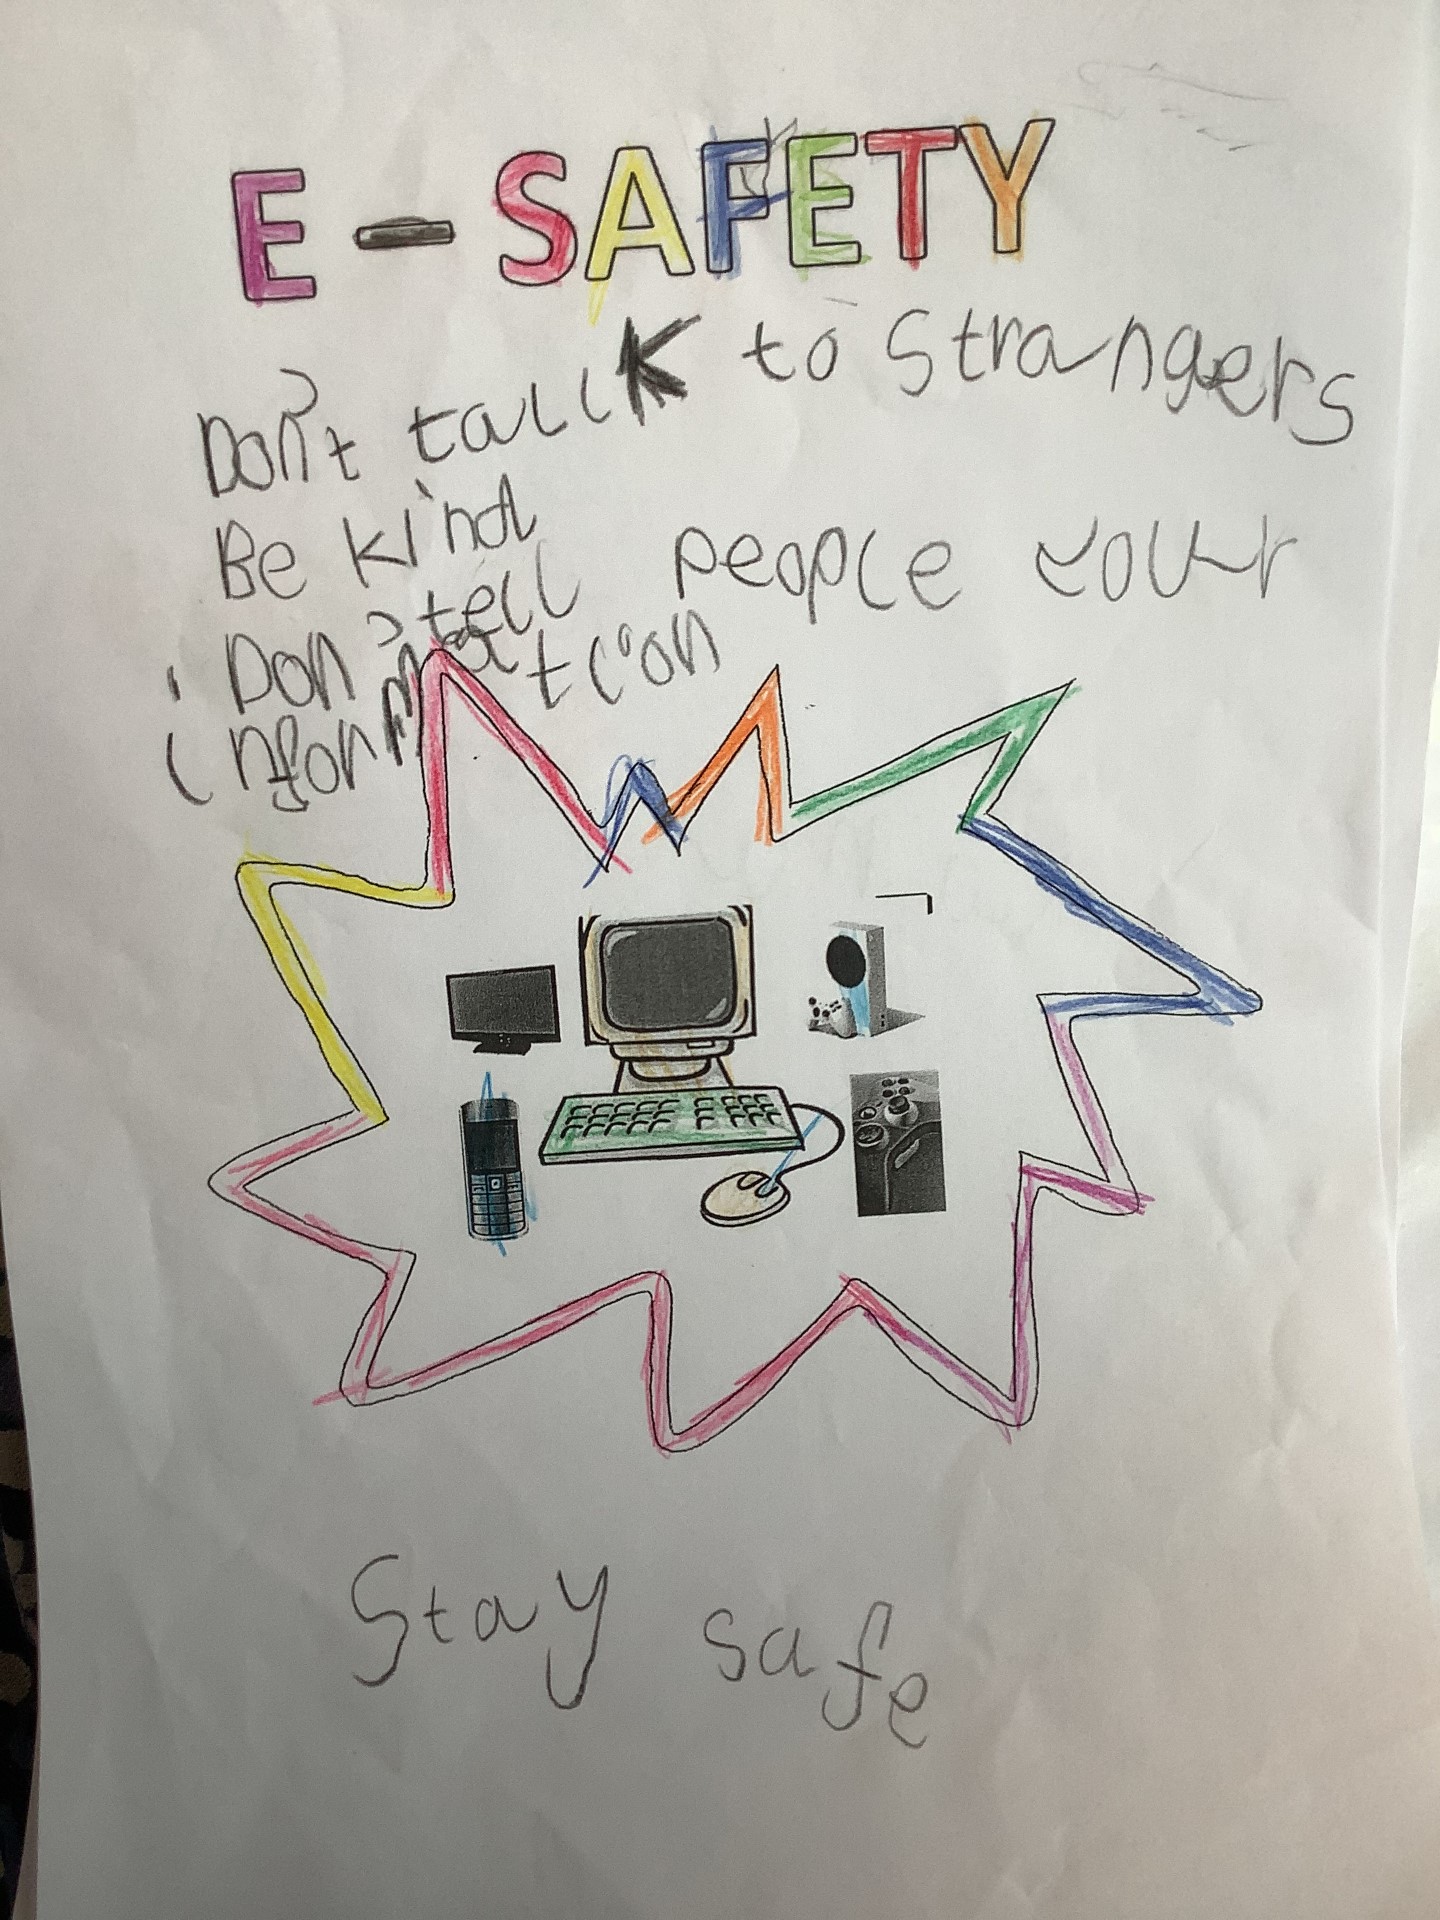 E - SAFETY
Don't tallk to Strangers
Be kind
Don' tell people your
information
Stay safe